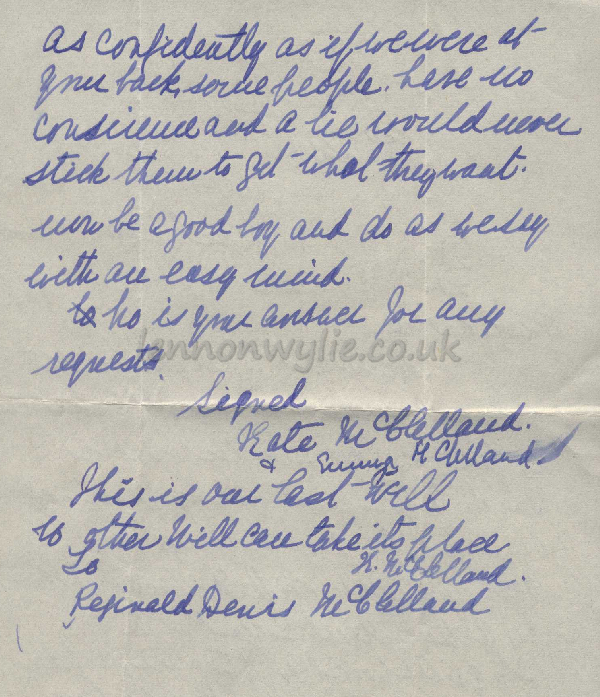 as confidently as if we were at
your back, some people have no
conscience and a lie would never
stick them to get what they want.
now be a good boy and do as we say
with an easy mind.
No is your answer for any
requests.
lennonwylie.co.uk
Signed
Kate McClelland.
& Emmy McClelland.
This is our last Will
no other Will can take its place
K. McClelland.
To
Reginald Denis McClelland